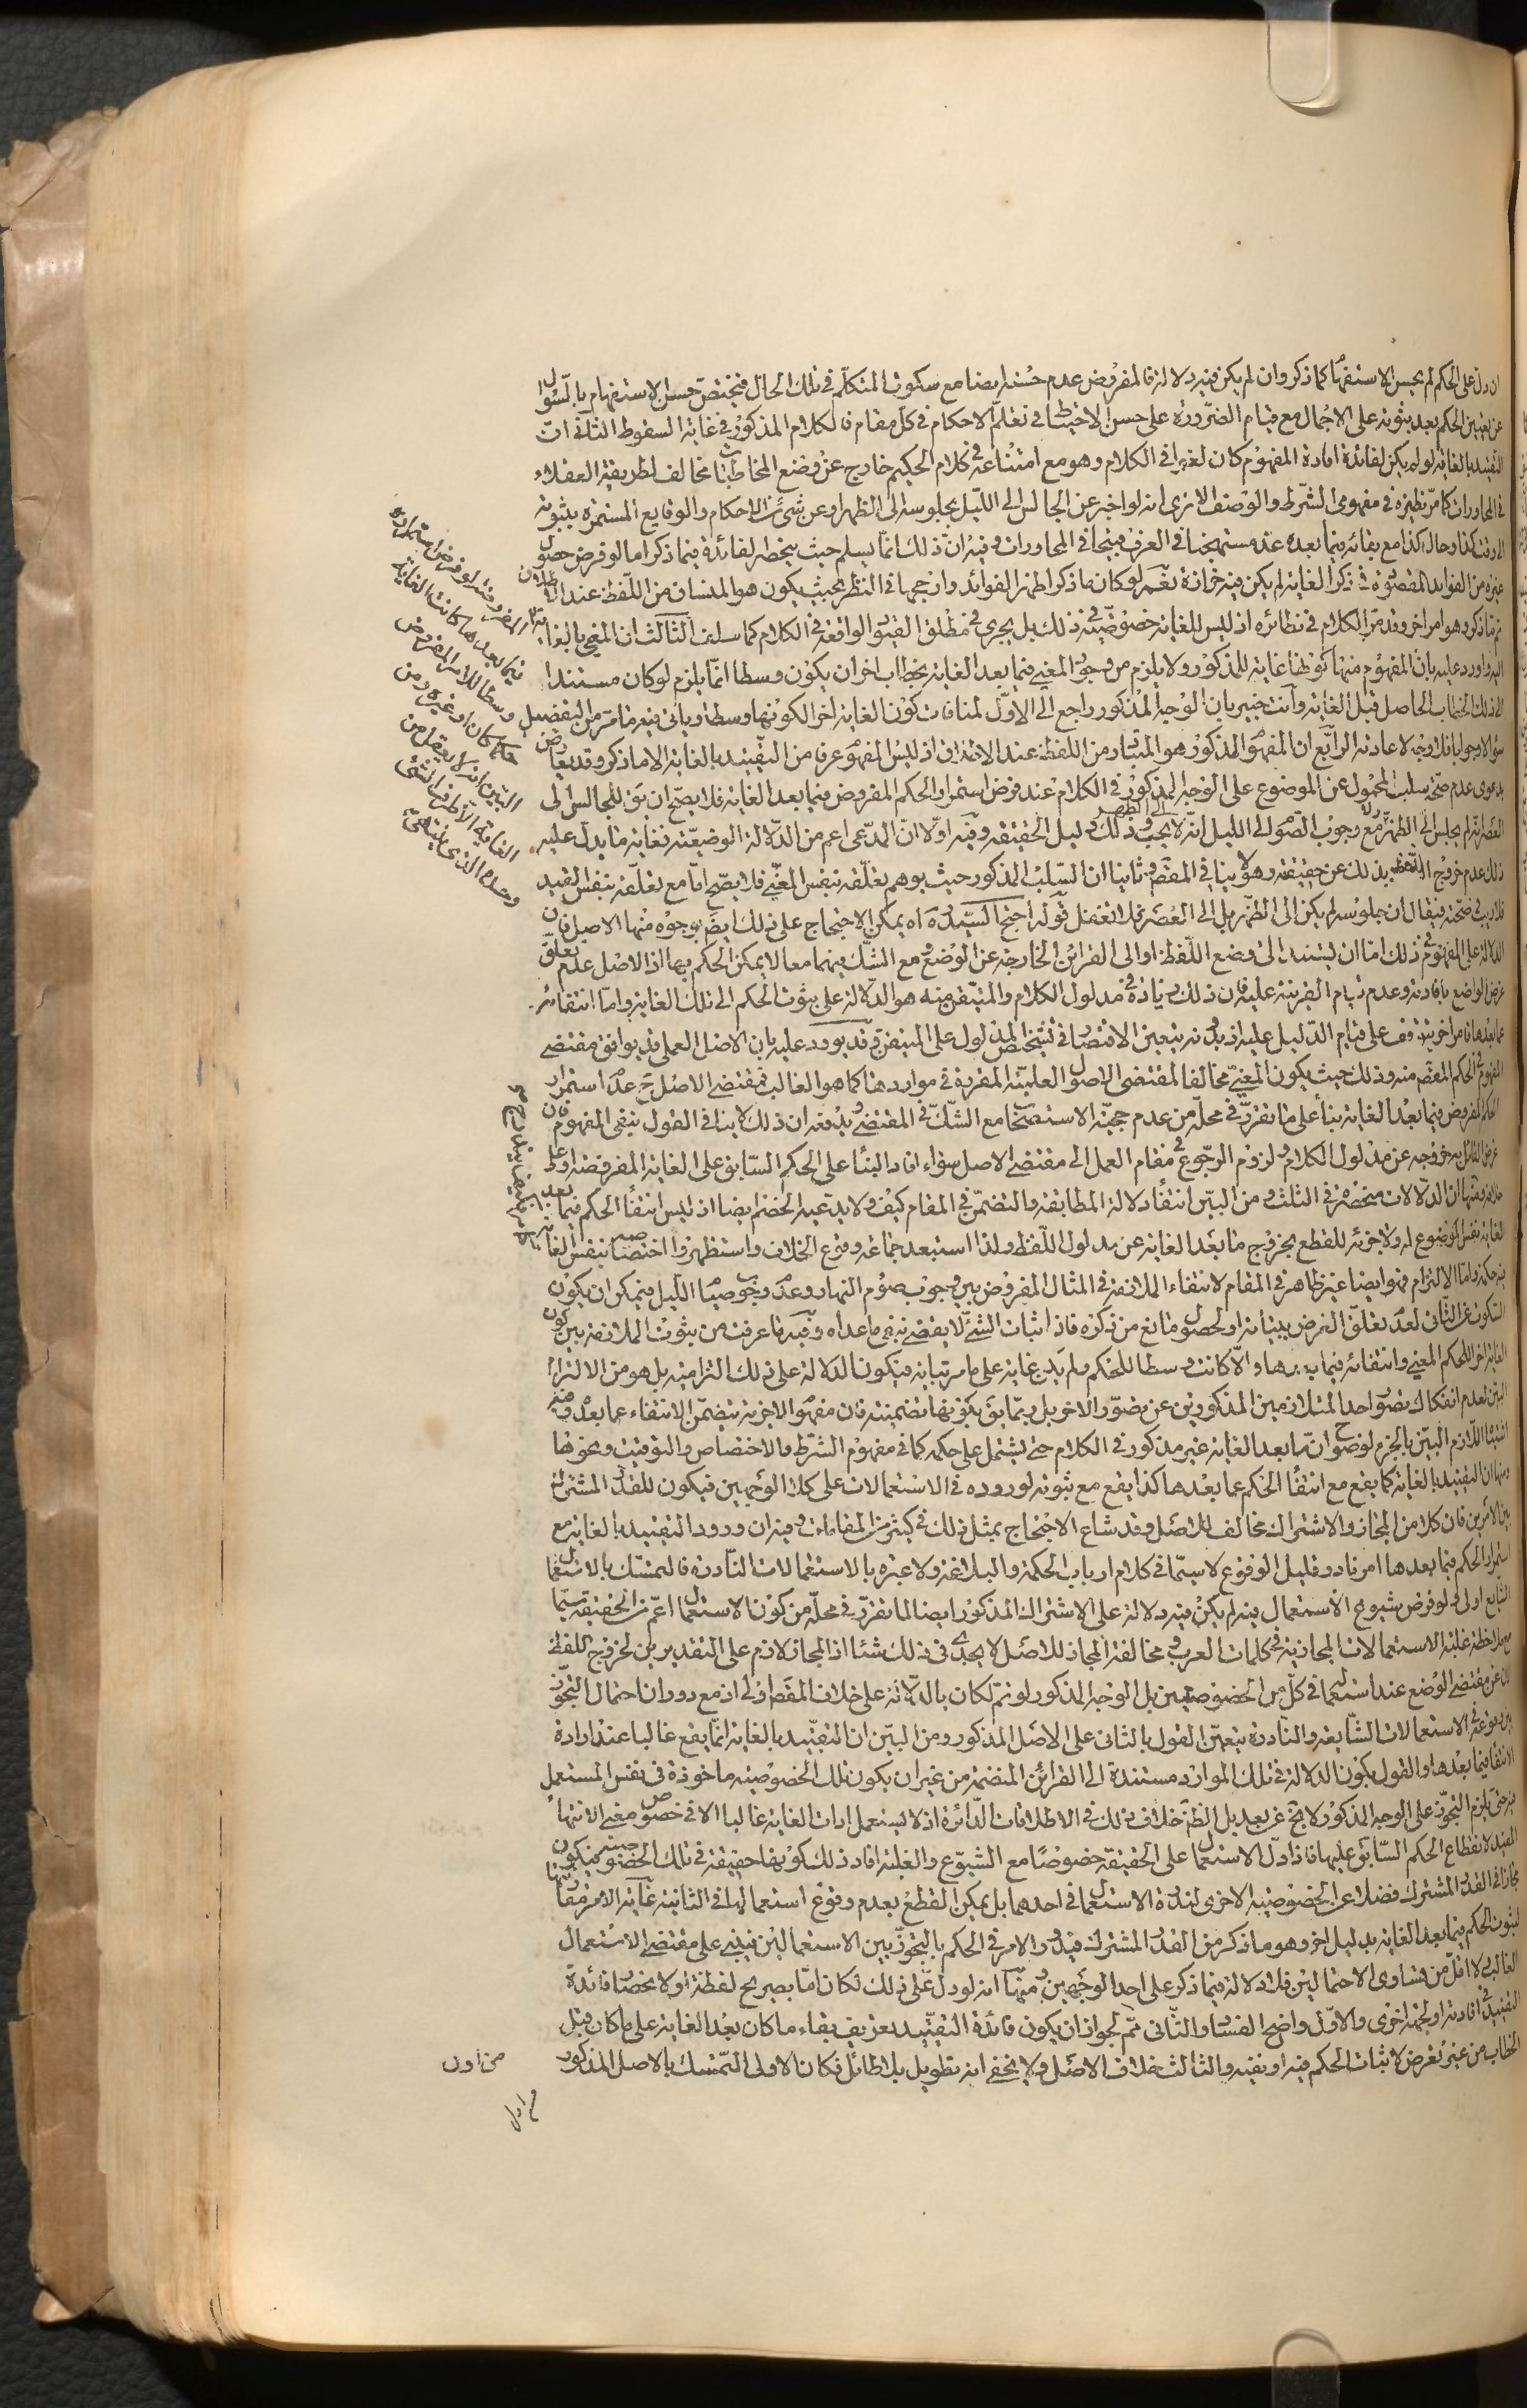 ان دل على الحكم لم يحسن الاستفهام كما ذكر وان لم يكن فيه دلالة فالمفروض عدم حسنه ايضا مع سكوت المتكلم في تلك الحال فيختص حسن الاستفهام بالسؤال
عن تعيين الحكم بعد ثبوته على الاجمال مع قيام الضرورة على حسن الاحتياط في تعلم الاحكام في كل مقام فالكلام المذكور في غاية السقوط الثالث ان
التقييد بالغاية لو لم يكن لفائدة افادة المفهوم كان لغوا في الكلام وهو مع امتناعه في كلام الحكيم خارج عن وضع المخاطبات مخالف لطريقة العقلاء
في المحاورات كما مر نظيره في مفهومي الشرط والوصف الا ترى انه لو اخبر عن الجالس الى الليل بجلوسه الى الظهر او عن شيء من الاحكام والوقايع المستمرة بثبوته
الى وقت كذا وحال كذا مع بقائه فيما بعده عد مستهجنا في العرف قبيحا في المحاورات وفيه ان ذلك انما يسلم حيث ينحصر الفائدة فيما ذكر اما لو فرض حصول
غيره من الفوايد المقصودة في ذكر الغاية لم يكن فيه حزازة نعم لو كان ما ذكر اظهر الفوائد وارجحها في النظر بحيث يكون هو المنساق من اللفظ عند الاطلاق
تم ما ذكر وهو امر اخر وقد مر الكلام في نظائره اذ ليس للغاية خصوصية في ذلك بل يجري في مطلق القيود الواقعة في الكلام كما سلف الثالث ان المغيى بالغاية
اليه واورد عليه بان المفهوم منها كونها غاية للمذكور ولا يلزم من وجود المغيى فيما بعد الغاية بخطاب اخر ان يكون وسطا انما يلزم لو كان مستندا
الى ذلك الخطاب الحاصل قبل الغاية وانت خبير بان الوجه المذكور راجع الى الاول لمنافات كون الغاية اخرا لكونها وسطا وياتي فيه ما مر من التفصيل
سؤالا وجوابا فلا وجه لاعادته الرابع ان المفهوم المذكور هو المتبادر من اللفظ عند الانصاف اذ ليس المفهوم عرفا من التقييد بالغاية الا ما ذكر وقد يعارض
بدعوى عدم صحة سلب المحمول عن الموضوع على الوجه المذكور في الكلام عند فرض استمرار الحكم المفروض فيما بعد الغاية فلا يصح ان يق للجالس الى
العصر انه لم يجلس الى الظهر مع وجوب الصوم الى الليل انه لا يجب الى الظهر وذلك دليل الحقيقة وفيه اولا ان المدعى اعم من الدلالة الوضعية فغاية ما يدل عليه
ذلك عدم خروج اللفظ بذلك عن حقيقته وهو لا ينافي المقصود وثانيا ان السلب المذكور حيث يوهم تعلقه بنفس المغيى فلا يصح اما مع تعلقه بنفس القيد
فلا ريب في صحته فيقال ان جلوسه لم يكن الى الظهر بل الى العصر فلا تغفل قوله احتج السيد ره اه يمكن الاحتجاج على ذلك ايضا بوجوه منها الاصل فان
الدلالة على المفهوم في ذلك اما ان يستند الى وضع اللفظ او الى القرائن الخارجة عن الوضع ومع الشك فيهما معا لا يمكن الحكم بها اذ الاصل عدم تعلق
غرض الواضع بافادته وعدم قيام القرينة عليه فان ذلك زيادة في مدلول الكلام والمتيقن منه هو الدلالة على ثبوت الحكم الى تلك الغاية واما انتفائه
عما بعدها فامر اخر يتوقف على قيام الدليل عليه اذ بدونه يتعين الاقتصار في تشخيص المدلول على المتيقن وقد يورد عليه بان الاصل العملي قد يوافق مقتضى
المفهوم في الحكم المقصود منه وذلك حيث يكون المغيى مخالفا لمقتضى الاصول العملية المقررة في مواردها كما هو الغالب فمقتضى الاصل ح عدم استمرار
الحكم المفروض فيما بعد الغاية بناء على ما تقرر في محله من عدم حجية الاستصحاب مع الشك في المقتضى ويدفعه ان ذلك لا ينافي القول بنفي المفهوم فان
غرض القائل به خروجه عن مدلول الكلام ولزوم الرجوع في مقام العمل الى مقتضى الاصل سواء افاد البناء على الحكم السابق على الغاية المفروضة او على
خلافه ومنها ان الدلالات منحصرة في الثلث ومن البين انتفاء دلالة المطابقة والتضمن في المقام كيف ولا يدعيه الخصم ايضا اذ ليس انتفاء الحكم فيما بعد
الغاية نفس الموضوع له ولا جزئه للقطع بخروج ما بعد الغاية عن مدلول اللفظ ولذا استبعد جماعة وقوع الخلاف واستظهروا اختصاصه بنفس الغاية
فيه حكمه واما الالتزام فهو ايضا غير ظاهر في المقام لانتفاء الملازمة في المثال المفروض بين وجوب صوم النهار وعدم وجوب صيام الليل فيمكن ان يكون
السكوت عن الثاني لعدم تعلق الغرض ببيانه او لحصول مانع من ذكره فاذا اثبات الشيء لا يقضي بنفي ما عداه وفيه ما عرفت من ثبوت الملازمة بين كون
الغاية اخر اللحكم المغيى وانتفائه فيما بعدها والا كانت وسطا للحكم ولم يكن غاية على ما مر بيانه فيكون الدلالة على ذلك التزامية بل هو من الالتزام
البين لعدم انفكاك تصور احد المتلازمين المذكورين عن تصور الاخر بل ربما يق بكونها تضمنية فان مفهوم الاخرية يتضمن الانتفاء عما بعده وفيه
اشتباه اللازم البين بالجزء لوضوح ان ما بعد الغاية غير مذكور في الكلام حتى يشتمل على حكمه كما في مفهوم الشرط والاختصاص والتوقيت ونحوها
ومنها ان التقييد بالغاية كما يقع مع انتفاء الحكم عما بعدها كذا يقع مع ثبوته لوروده في الاستعمالات على كلا الوجهين فيكون للقدر المشترك
بين الامرين فان كلا من المجاز والاشتراك مخالف للاصل وقد شاع الاحتجاج بمثل ذلك في كثير من المقامات وفيه ان ورود التقييد بالغاية مع
استمرار الحكم فيما بعدها امر نادر قليل الوقوع لا سيما في كلام ارباب الحكمة والبلاغة ولا عبرة بالاستعمالات النادرة فالتمسك بالاستعمال
الشايع اولى ولو فرض شيوع الاستعمال فيه لم يكن فيه دلالة على الاشتراك المذكور ايضا لما تقرر في محله من كون الاستعمال اعم من الحقيقة سيما
مع ملاحظة غلبة الاستعمالات المجازية في كلمات العرب ومخالفة المجاز للاصل لا يجدي في ذلك شيئا اذ المجاز لازم على التقديرين لخروج اللفظ
عن مقتضى الوضع عند استعماله في كل من الخصوصيتين بل الوجه المذكور لو تم لكان بالدلالة على خلاف المقصود اولى اذ مع دوران احتمال التجوز
بين وقوعه في الاستعمالات الشايعة والنادرة يتعين القول بالثاني على الاصل المذكور ومن البين ان التقييد بالغاية انما يقع غالبا عند ارادة
الانتفاء فيما بعدها والقول بكون الدلالة في تلك الموارد مستندة الى القرائن المنضمة من غير ان يكون تلك الخصوصية ماخوذة في نفس المستعمل
فيه حتى يلزم التجوز على الوجه المذكور لا يخ عن بعد بل الظ خلاف ذلك في الاطلاقات الدائرة اذ لا يستعمل ادات الغاية غالبا الا في خصوص معنى الانتهاء
المفيد لانقطاع الحكم السابق عليها فاذا دل الاستعمال على الحقيقة خصوصا مع الشيوع والغلبة افاد ذلك كونها حقيقة في تلك الخصوصية فيكون
مجازا في القدر المشترك فضلا عن الخصوصية الاخرى لندرة الاستعمال في احدهما بل يمكن القطع بعدم وقوع استعمالها في الثانية غاية الامر مقارنتها
لثبوت الحكم فيما بعد الغاية بدليل اخر وهو ما ذكر من القدر المشترك فيدور الامر في الحكم بالتجوز بين الاستعمالين فيبنى على مقتضى الاستعمال
الغالب ولا اقل من تساوي الاحتمالين فلا دلالة فيما ذكر على احد الوجهين ومنها انه لو دل على ذلك لكان اما بصريح لفظه او لانحصار فائدة
التقييد في افادته او لجهة اخرى والاول واضح الفساد والثاني مم لجواز ان يكون فائدة التقييد تعريف بقاء ما كان بعد الغاية على ما كان قبل
الخطاب من غير تعرض لاثبات الحكم فيه او نفيه والثالث خلاف الاصل ولا يخفى انه تطويل بلا طائل فكان الاولى التمسك بالاصل المذكور
من اول